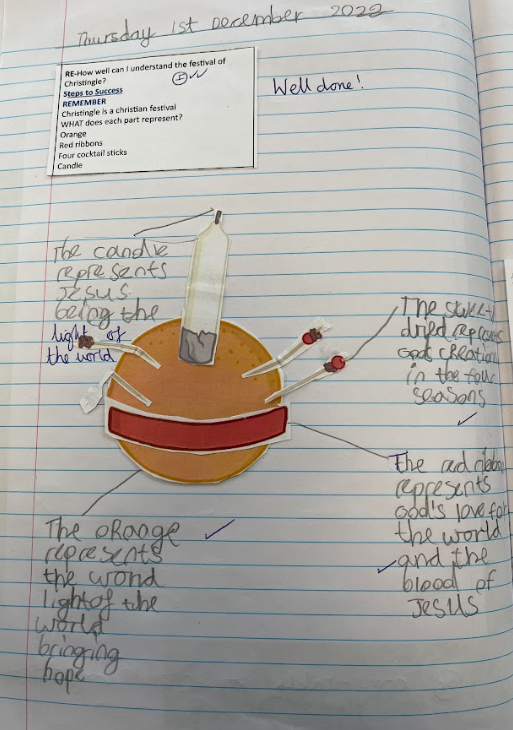 Thursday 1st December 2022
RE-How well can I understand the festival of
Christingle?
Steps to Success
REMEMBER
Christingle is a christian festival
WHAT does each part represent?
Orange
Red ribbons
Four cocktail sticks
Candle
Well done!
The candle
represents
Jesus
being the
light of
the world
The sweet
dried represents
God creation
in the four
seasons
The red ribbon
represents
God's love for
the world
and the
blood of
Jesus
The orange
represents
the world
light of the
world
bringing
hope